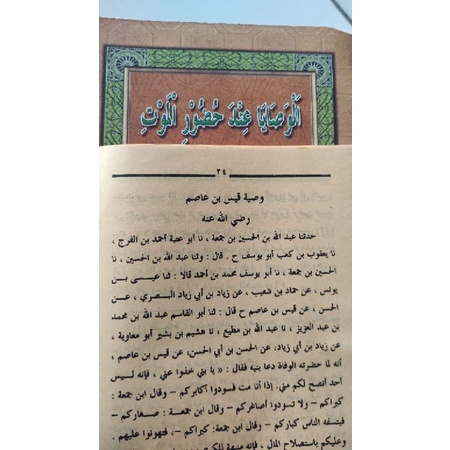 الْوَصَايَا عِنْدَ حُضُورِ الْمَوْتِ
٣٤
وصية قيس بن عاصم
رضي الله عنه
حدثنا عبد الله بن الحسين بن جمعة ، نا أبو عتبة أحمد بن الفرج ،
نا يعقوب بن كعب أبو يوسف ح . قال : وثنا عبد الله بن الحسين ، نا
الحسين بن جمعة ، نا أبو يوسف محمد بن أحمد قالا : ثنا عيسى بن
يونس ، عن حماد بن شعيب ، عن زياد بن أبي زياد البصري ، عن
الحسن ، عن قيس بن عاصم ح قال : ثنا أبو القاسم عبد الله بن محمد
بن عبد العزيز ، نا عبد الله بن مطيع ، نا هشيم بن بشير أبو معاوية ،
عن زياد بن أبي زياد، عن الحسن بن أبي الحسن، عن قيس بن عاصم ،
أنه لما حضرته الوفاة دعا بنيه فقال : « يا بني خذوا عني ، فإنه ليس
أحد أنصح لكم مني. إذا أنا مت فسودوا أكابركم – وقال ابن جمعة :
كبراكم – ولا تسودوا أصاغركم – وقال ابن جمعة : صغاركم –
فيتسفه الناس كباركم – وقال ابن جمعة: كبراكم –، فتهونوا عليهم .
وعليكم باستصلاح المال ، فإنه منبهة للكريم